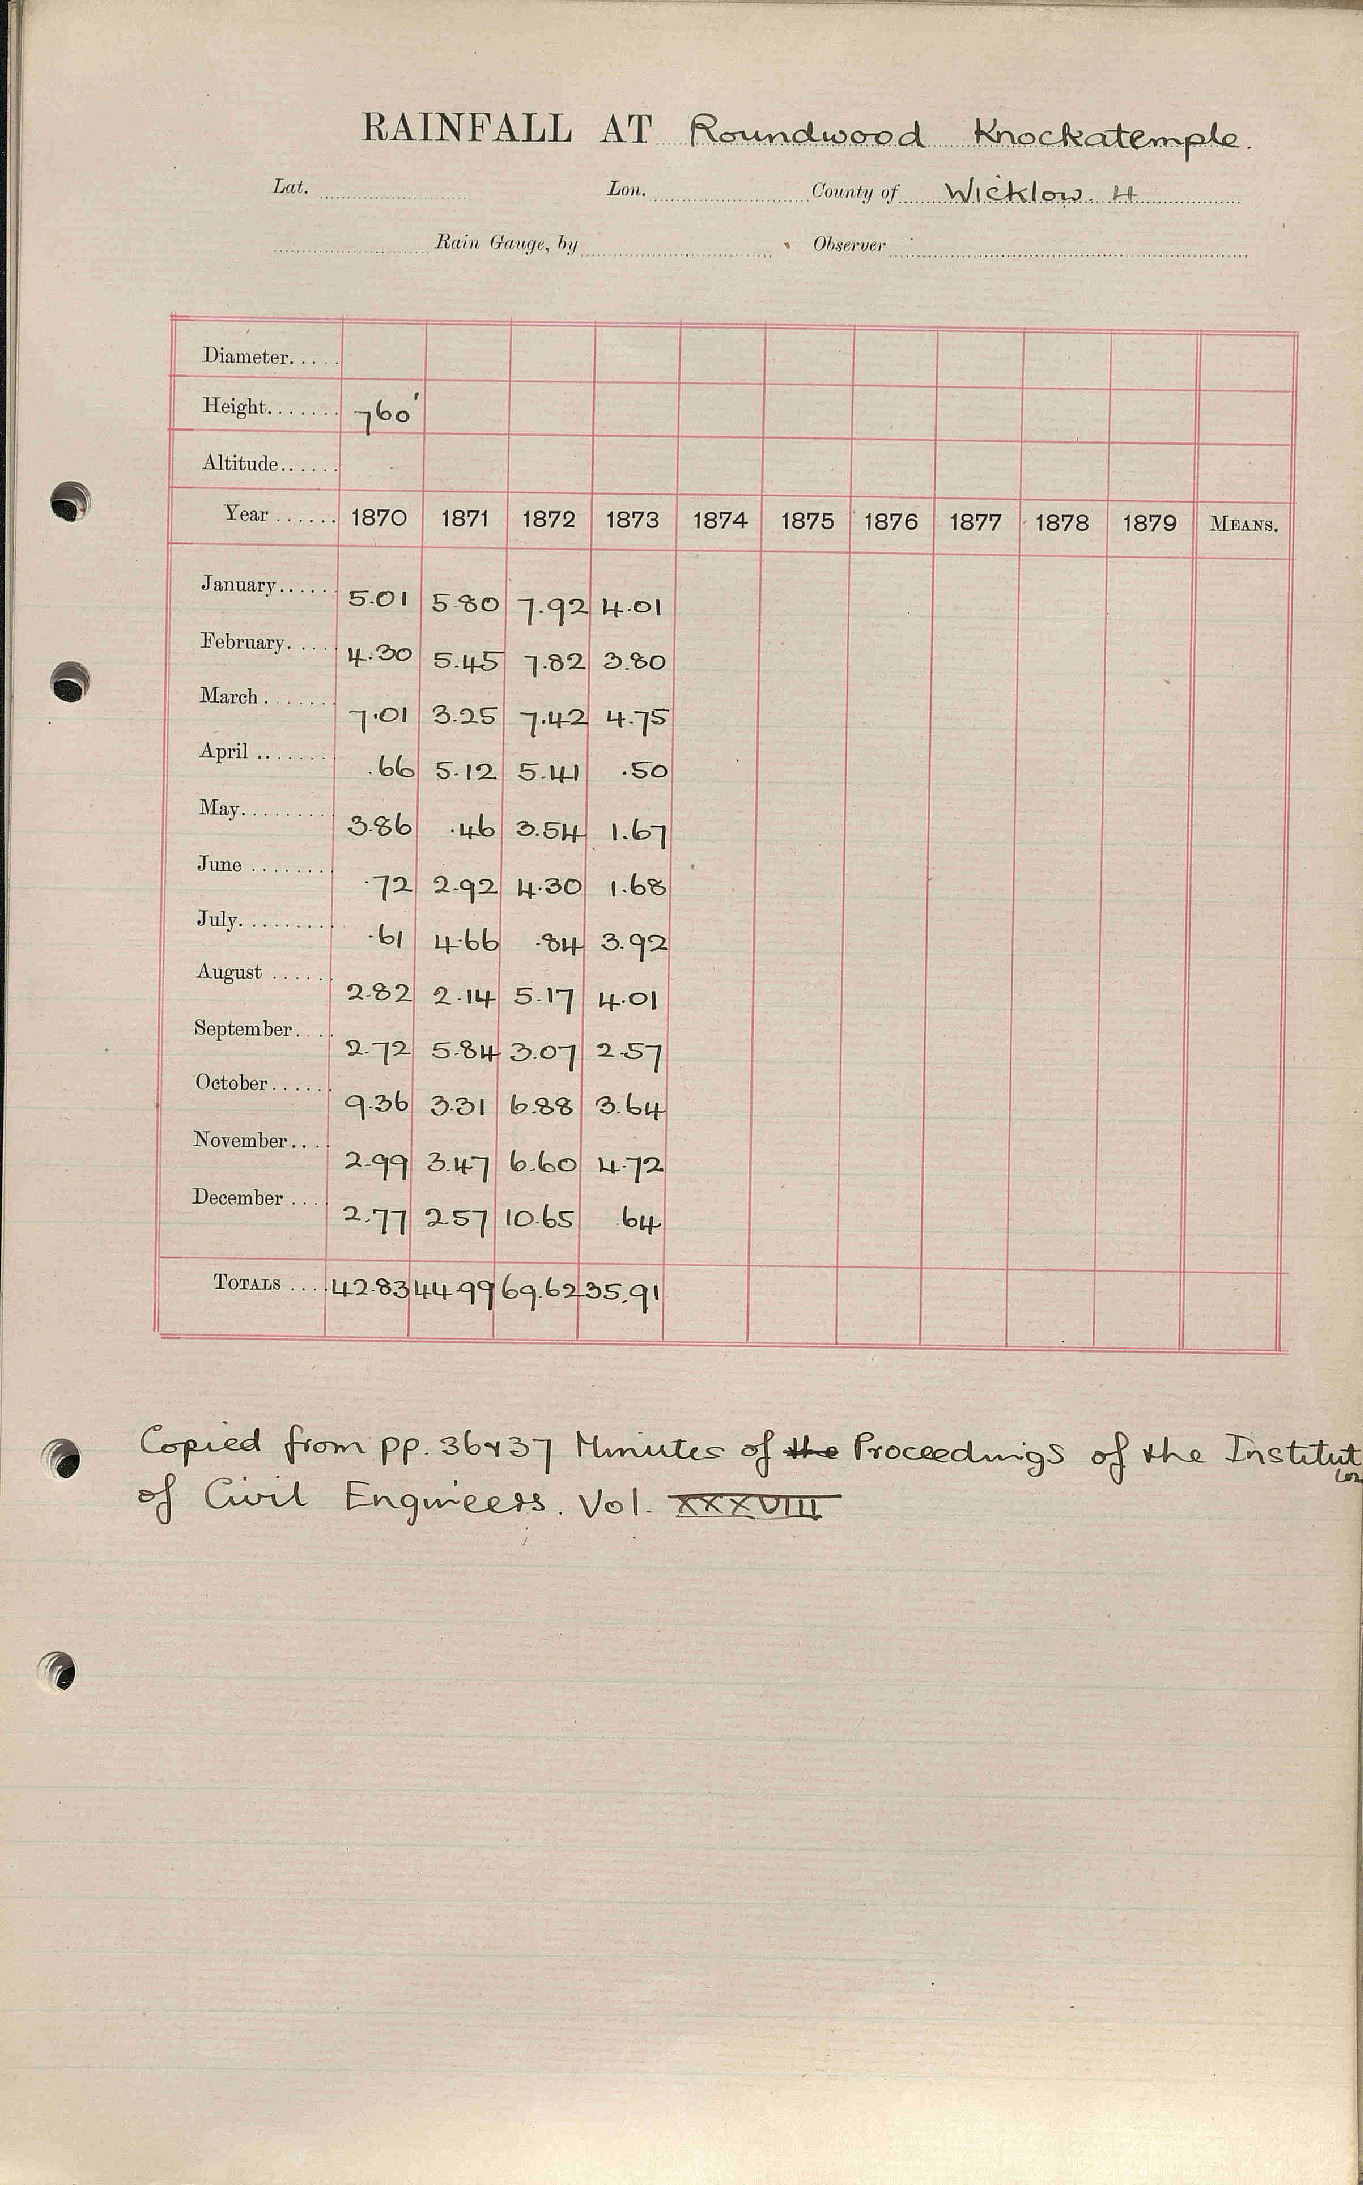 RAINFALL AT Roundwood Knockatemple.
Lat. Lon. County of Wicklow. H
Rain Gauge, by Observer
Diameter.....
Height....... 760'
Altitude......
Year ...... 1870 1871 1872 1873 1874 1875 1876 1877 1878 1879 MEANS.
January...... 5.01 5.80 7.92 4.01
February..... 4.30 5.45 7.82 3.80
March ....... 7.01 3.25 7.42 4.75
April ......... .66 5.12 5.41 .50
May.......... 3.86 .46 3.54 1.67
June ........ .72 2.92 4.30 1.68
July.......... .61 4.66 .84 3.92
August ...... 2.82 2.14 5.17 4.01
September.... 2.72 5.84 3.07 2.57
October...... 9.36 3.31 6.88 3.64
November.... 2.99 3.47 6.60 4.72
December .... 2.77 2.57 10.65 .64
TOTALS .... 42.83 44.99 69.62 35.91
Copied from pp. 36 & 37 Minutes of the Proceedings of the Institution
of Civil Engineers. Vol. XXXVIII